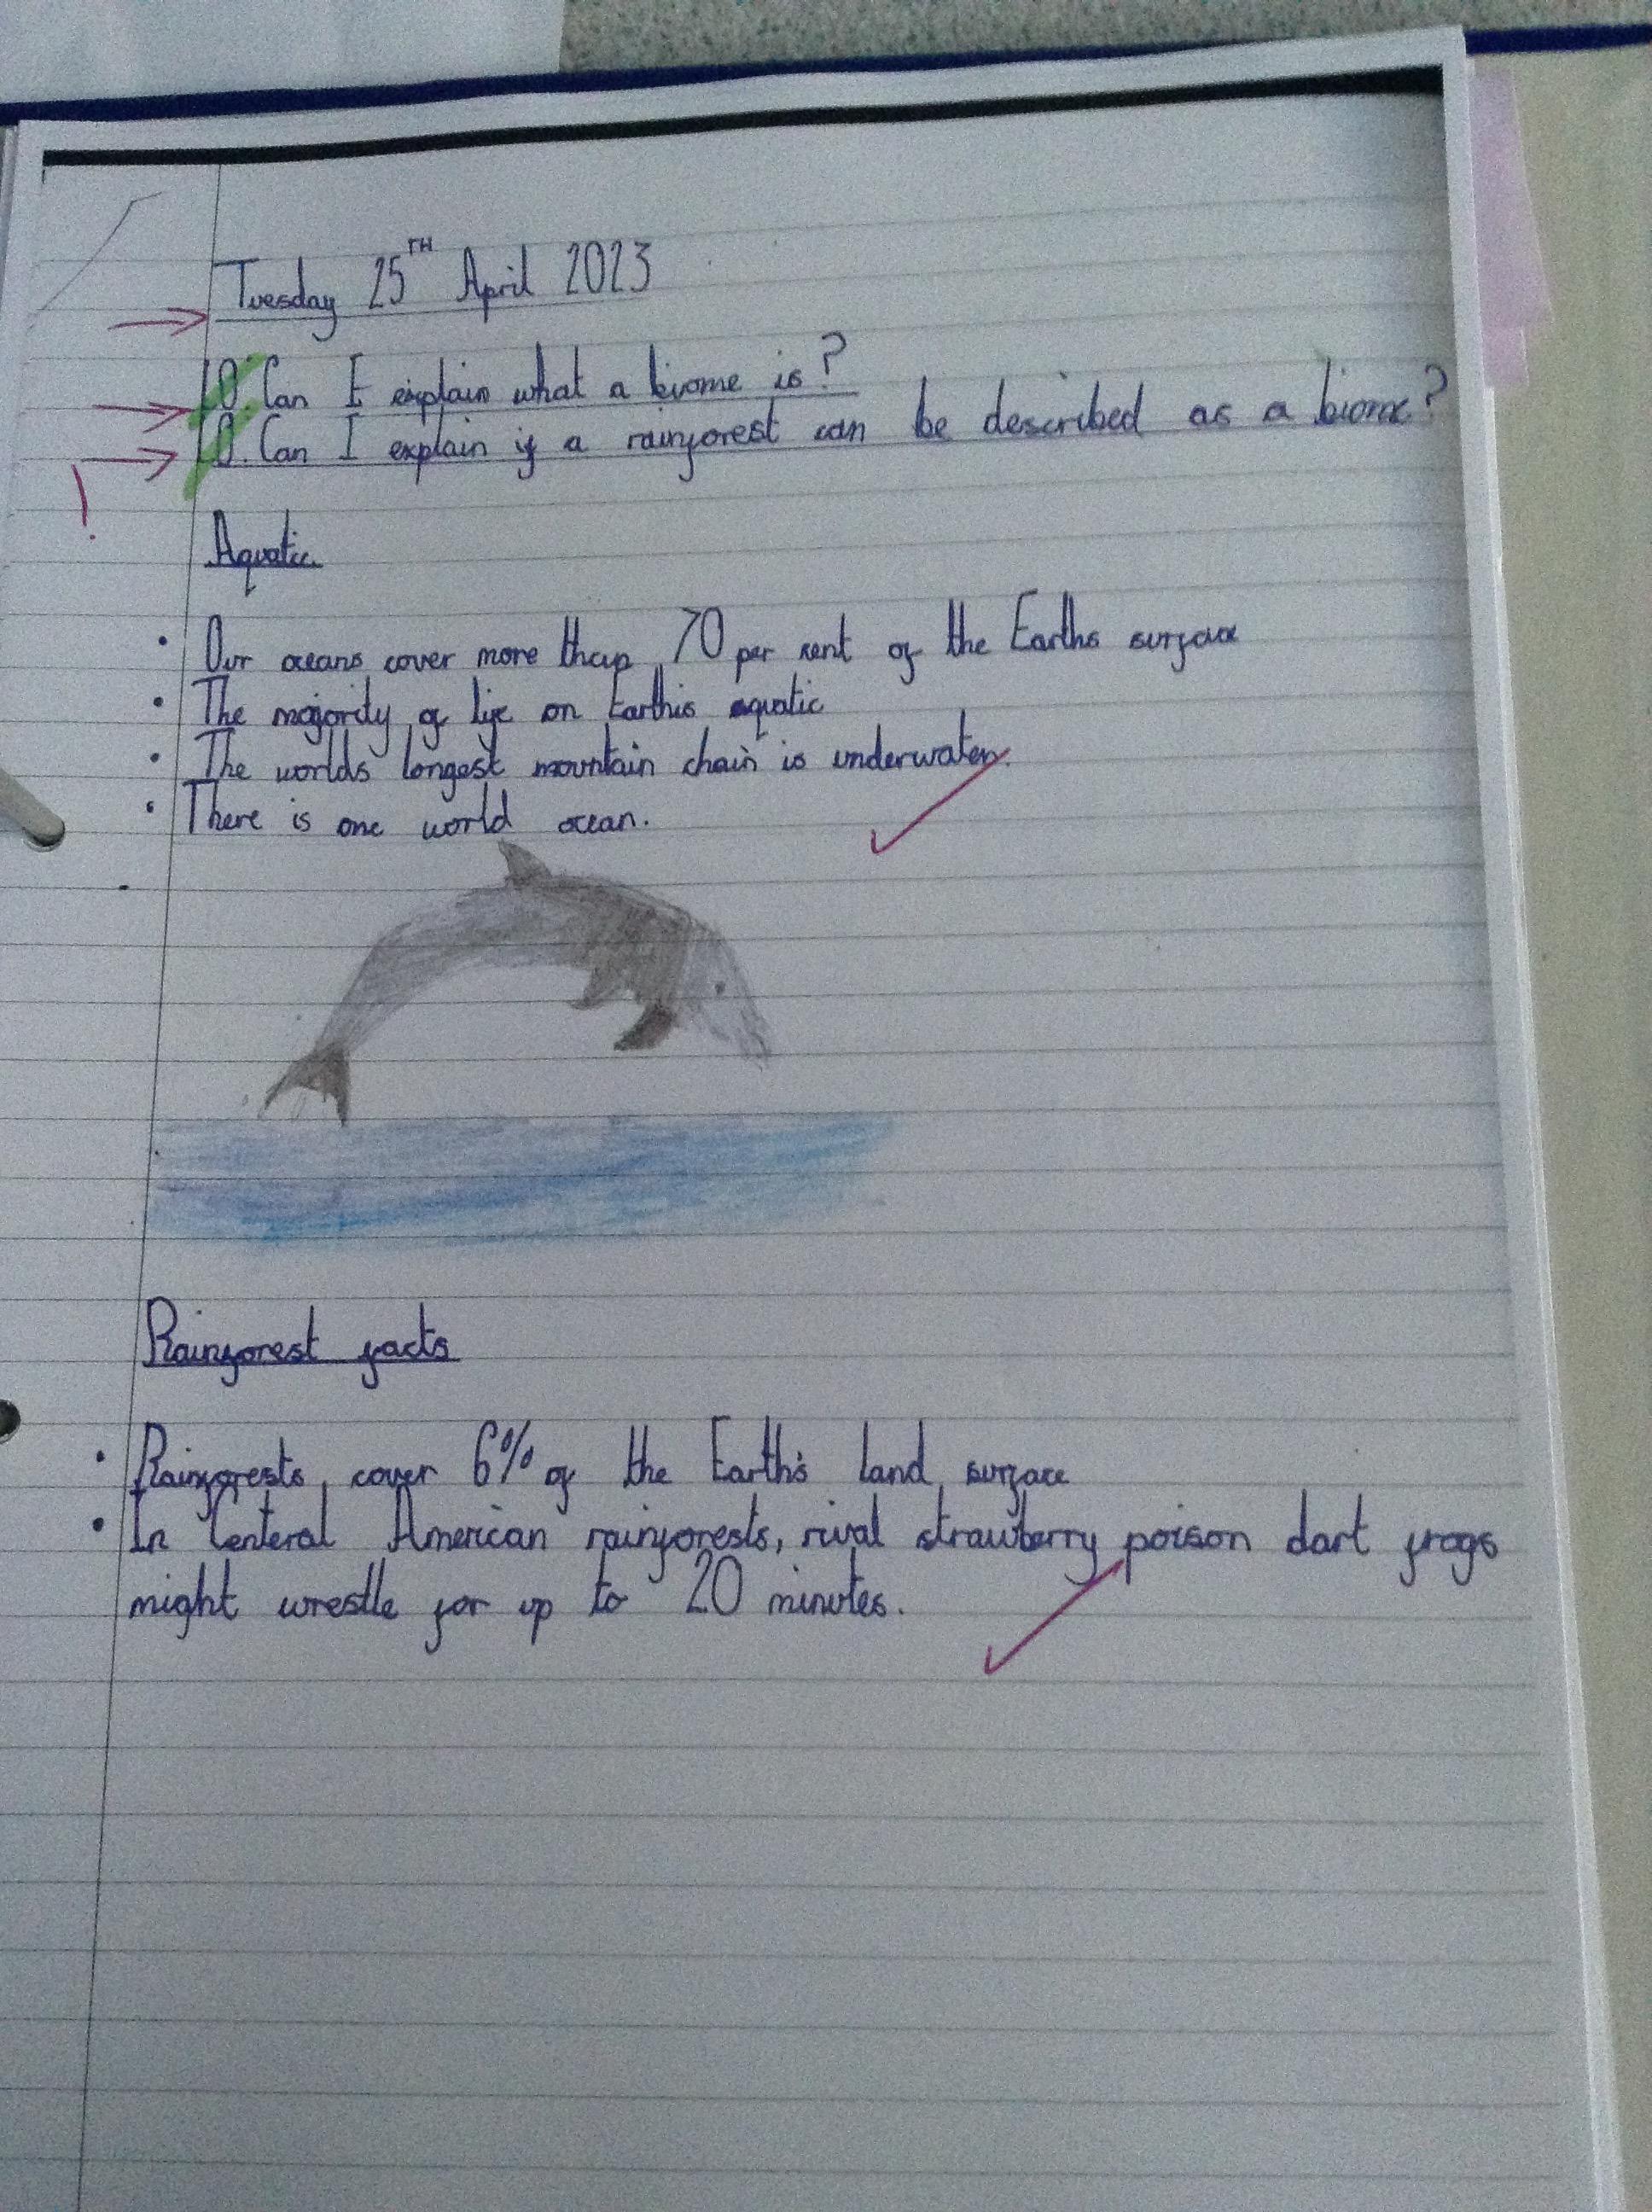 Tuesday 25TH April 2023
LO. Can I explain what a biome is?
LO. Can I explain if a rainforest can be described as a biome?
Aquatic
• Our oceans cover more than 70 per cent of the Earths surface
• The majority of life on Earth is aquatic
• The worlds longest mountain chain is underwater.
• There is one world ocean.
Rainforest facts
• Rainforests cover 6% of the Earth's land surface
• In Centeral American rainforests, rival strawberry poison dart frogs
might wrestle for up to 20 minutes.